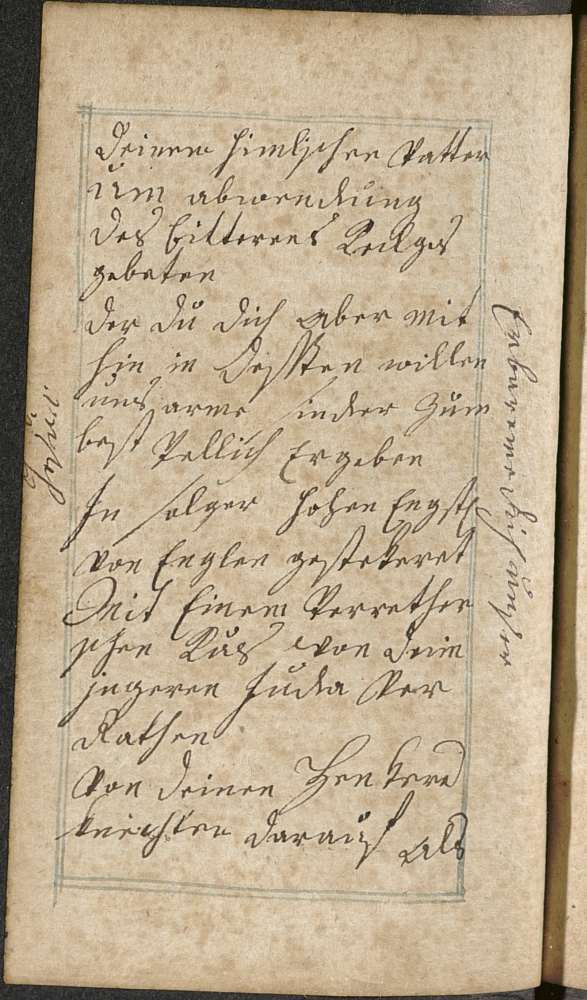 Deinem himlischen Vatter
um abwendung
des bitteren Kelchgs
gebeten
der du dich aber mit
hin in willen
uns arme sinder zum
best Vellich Ergeben
In solger hohen Engst
von Englen gesterkeret
Mit Einem Verrether
schen Kus von deim
jngeren Juda Ver
Rathen
Von deinen Henkers
knechten darauf als
Erbareme dich unser